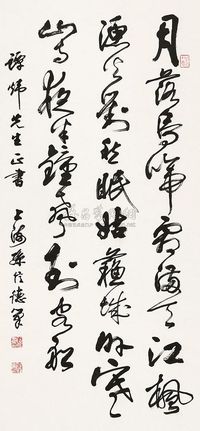 月落烏啼霜滿天江楓
漁火對愁眠姑蘇城外寒
山寺夜半鐘聲到客船
譚煒先生正書
上海孫